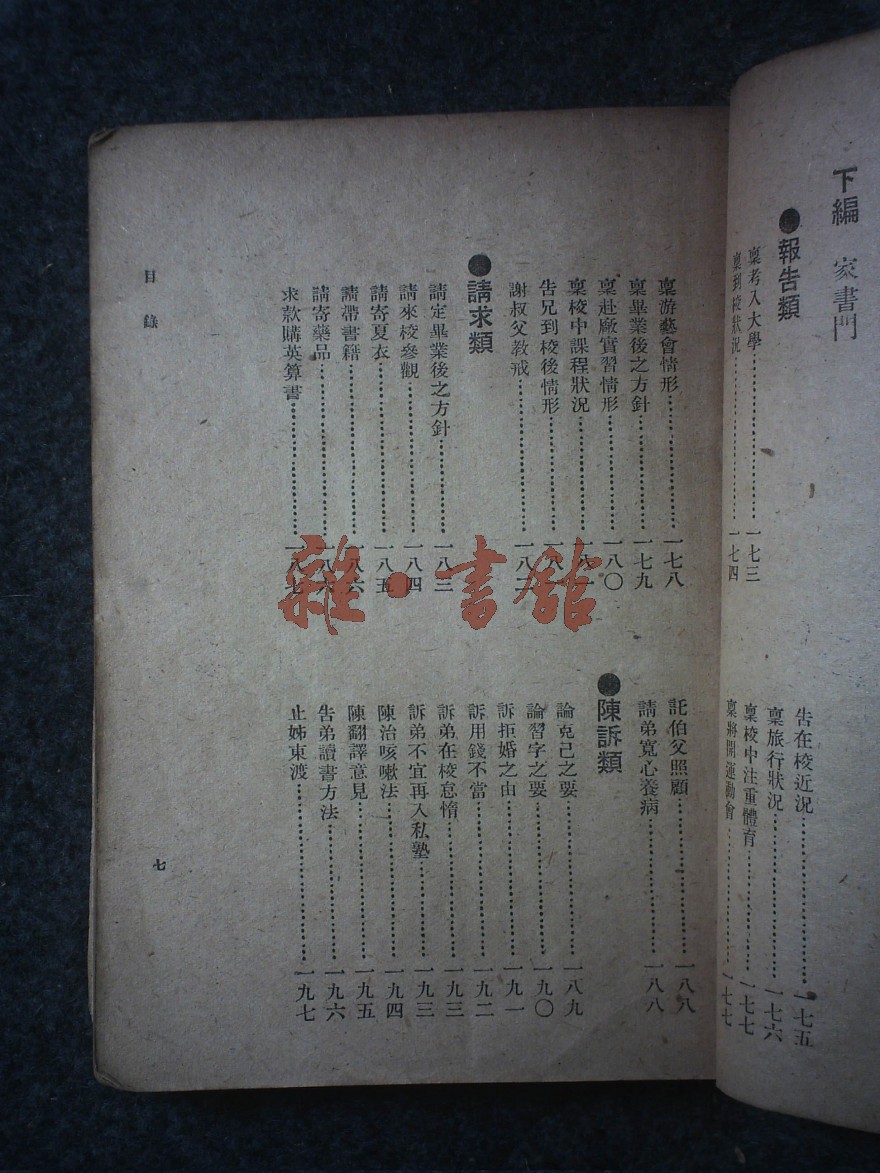 下編 家書門
●報告類
稟考入大學⋯⋯一七三
稟到校狀況⋯⋯一七四
告在校近況⋯⋯一七五
稟旅行狀況⋯⋯一七六
稟校中注重體育⋯⋯一七七
稟將開運動會⋯⋯一七七
稟游藝會情形⋯⋯一七八
稟畢業後之方針⋯⋯一七九
稟赴廠實習情形⋯⋯一八〇
稟校中課程狀況⋯⋯一八一
告兄到校後情形⋯⋯一八一
謝叔父教戒⋯⋯一八二
●請求類
請定畢業後之方針⋯⋯一八三
請來校參觀⋯⋯一八四
請寄夏衣⋯⋯一八五
請帶書籍⋯⋯一八六
請寄藥品⋯⋯一八六
求款購英算書⋯⋯一八七
託伯父照顧⋯⋯一八八
請弟寬心養病⋯⋯一八八
●陳訴類
論克己之要⋯⋯一八九
論習字之要⋯⋯一九〇
訴拒婚之由⋯⋯一九一
訴用錢不當⋯⋯一九二
訴弟在校怠惰⋯⋯一九三
訴弟不宜再入私塾⋯⋯一九三
陳治咳嗽法⋯⋯一九四
陳翻譯意見⋯⋯一九五
告弟讀書方法⋯⋯一九六
止姊東渡⋯⋯一九七
目錄
七
雜·書館